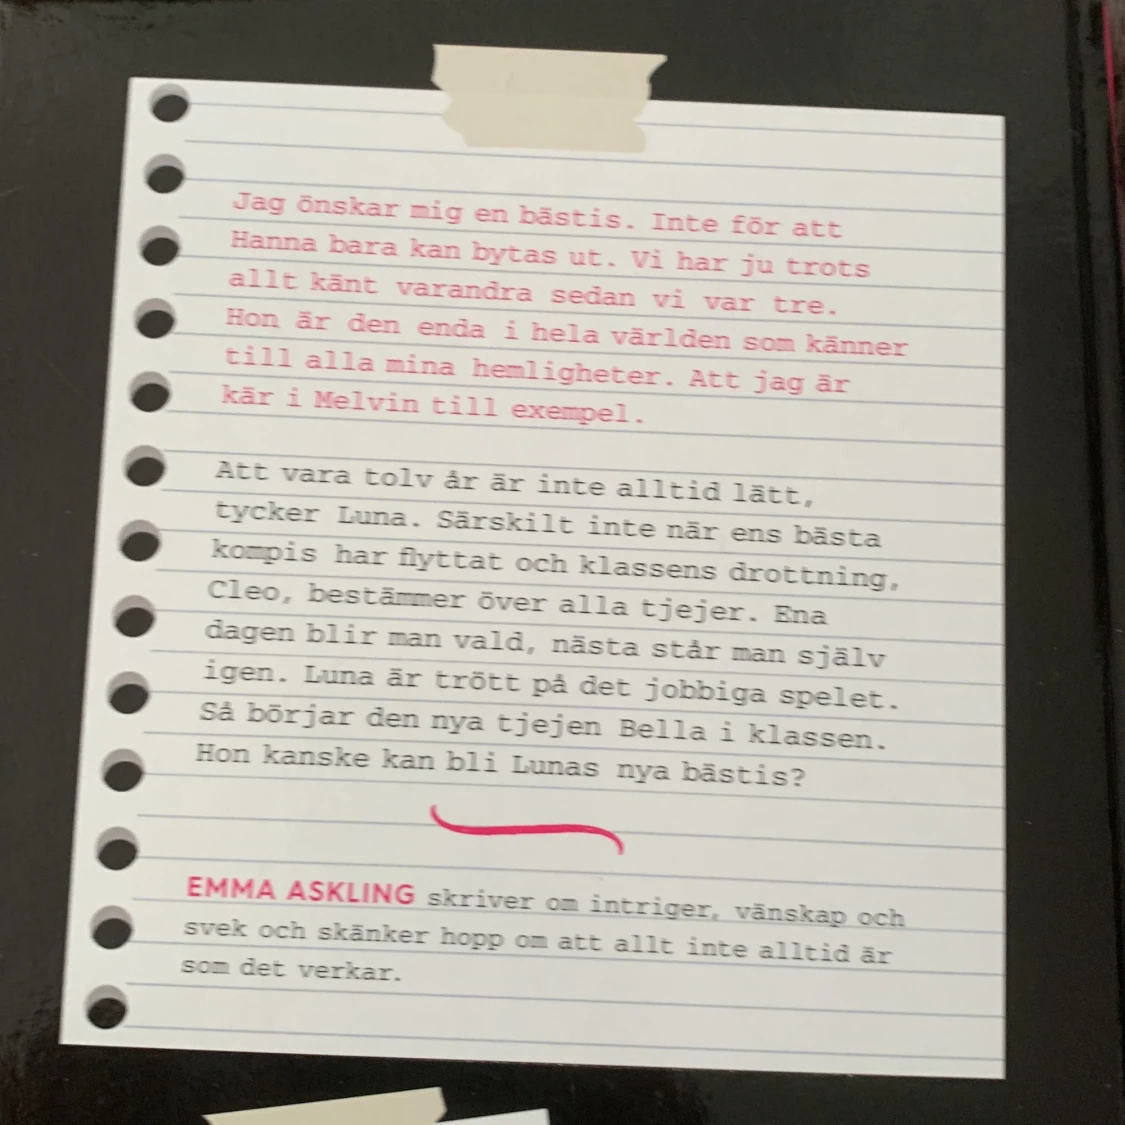 Jag önskar mig en bästis. Inte för att
Hanna bara kan bytas ut. Vi har ju trots
allt känt varandra sedan vi var tre.
Hon är den enda i hela världen som känner
till alla mina hemligheter. Att jag är
kär i Melvin till exempel.
Att vara tolv år är inte alltid lätt,
tycker Luna. Särskilt inte när ens bästa
kompis har flyttat och klassens drottning,
Cleo, bestämmer över alla tjejer. Ena
dagen blir man vald, nästa står man själv
igen. Luna är trött på det jobbiga spelet.
Så börjar den nya tjejen Bella i klassen.
Hon kanske kan bli Lunas nya bästis?
EMMA ASKLING skriver om intriger, vänskap och
svek och skänker hopp om att allt inte alltid är
som det verkar.